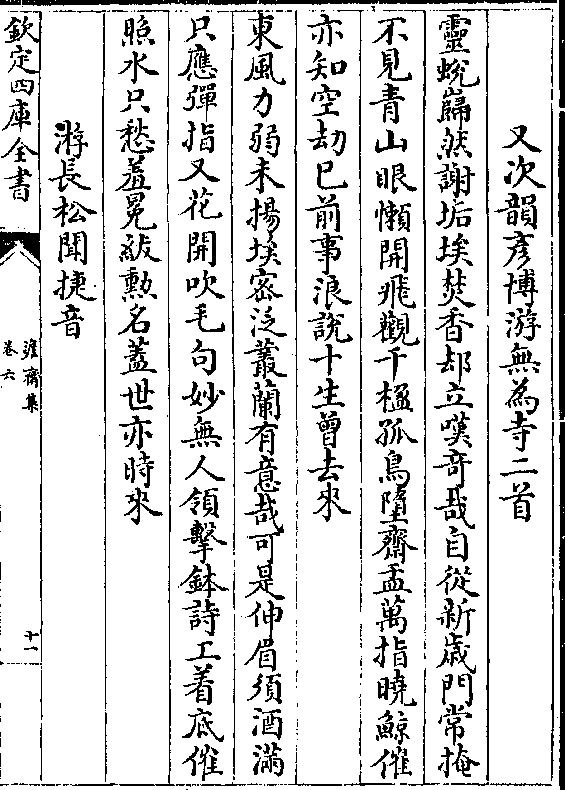 又次韻彥博游無為寺二首
靈蛻巋然謝垢埃焚香却立嘆奇哉自從新歳門常掩
不見青山眼懶開飛觀千楹孤鳥墮齋盂萬指曉鯨催
亦知空劫已前事浪說十生曾去來
東風力弱未揚埃密泛叢蘭有意哉可是伸眉須酒滿
只應彈指又花開吹毛句妙無人領擊鉢詩工着底催
照水只愁羞冕紱勲名蓋世亦時來
游長松聞捷音
欽定四庫全書
澹齋集
卷六
十一